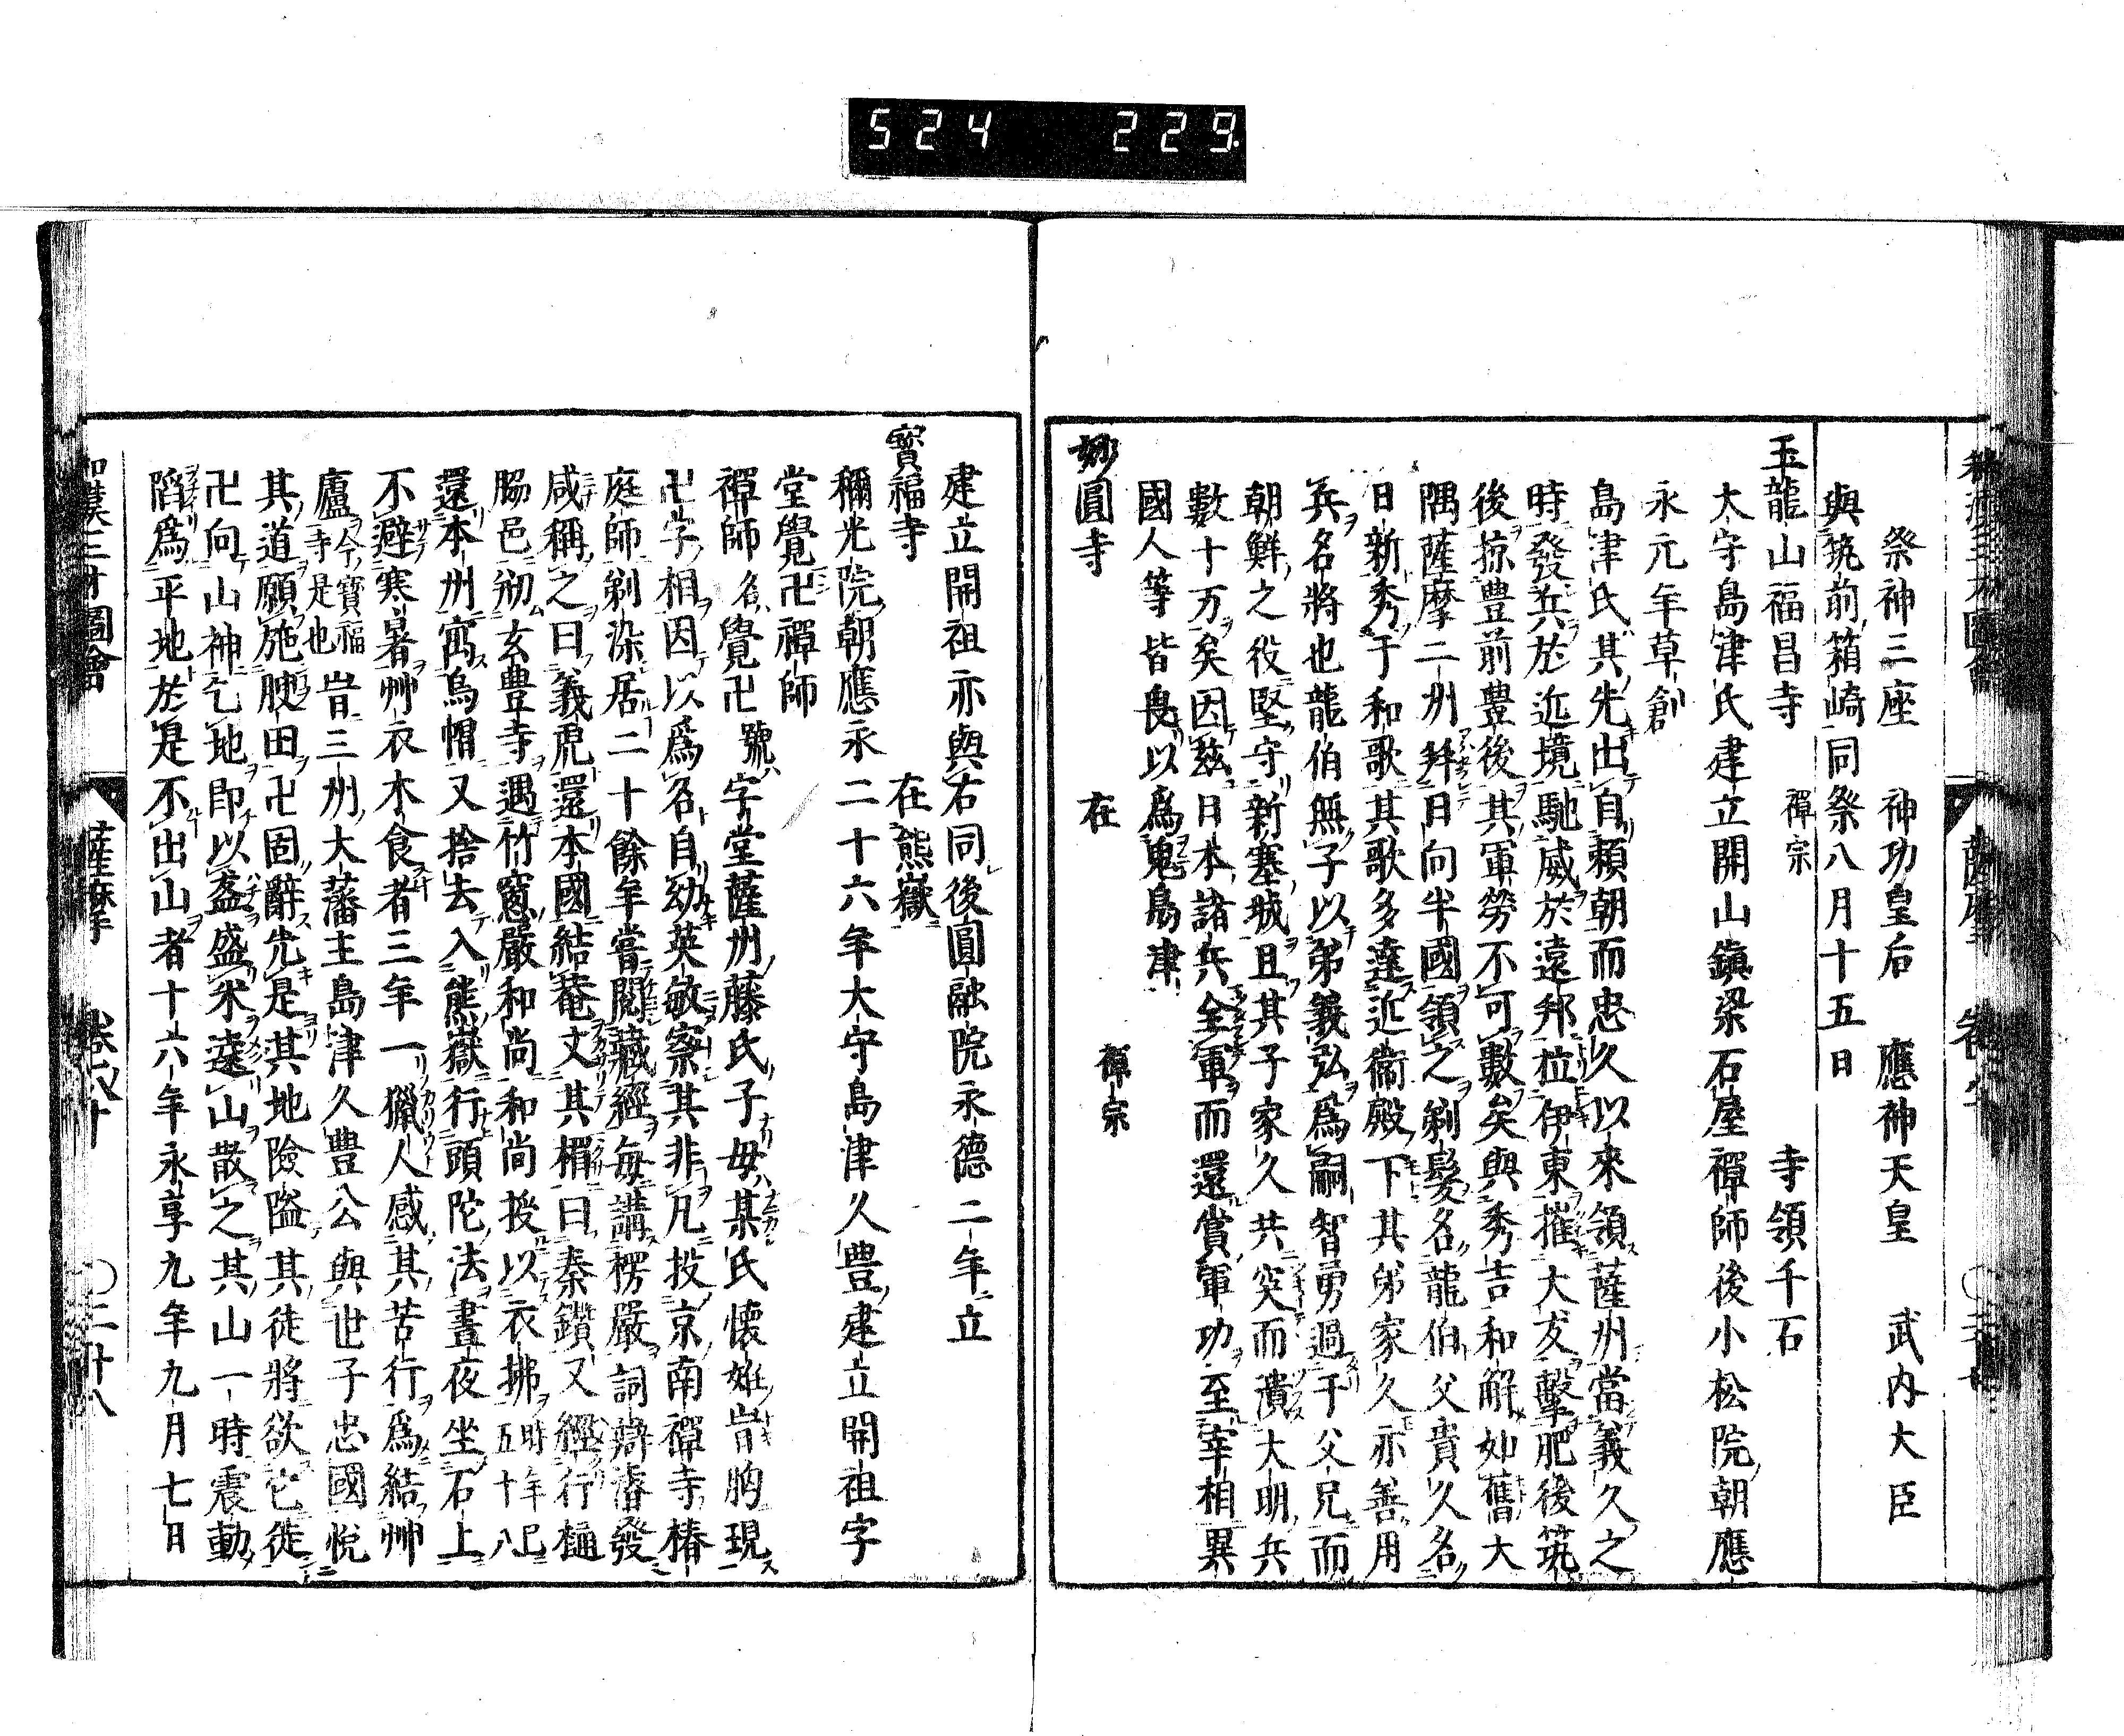 524 229
祭神三座 神功皇后 應神天皇 武内大臣
與筑前箱崎同祭八月十五日
玉龍山福昌寺 禪宗 寺領千石
大守島津氏建立開山鎮梁石屋禪師後小松院朝應
永元年草創
島津氏其先出自頼朝而忠久以來領薩州當義久之
時發兵於近境馳威於遠邦拉伊東摧大友擊肥後筑
後掠豊前豊後其軍勞不可數矣與秀吉和解如舊大
隅薩摩二州幷日向半國領之剃髮名龍伯父貴久名
日新秀于和歌其歌多達近衞殿下其弟家久亦善用
兵名將也龍伯無子以弟義弘爲嗣智勇過于父兄而
朝鮮之役堅守新寨城且其子家久共突而潰大明兵
數十万矣因茲日本諸兵全軍而還賞軍功至宰相異
國人等皆畏以爲鬼島津
妙圓寺 在 禪宗
建立開祖亦與右同後圓融院永德二年立
寳福寺 在熊嶽
稱光院朝應永二十六年大守島津久豊建立開祖字
堂覺卍禪師
禪師名覺卍號字堂薩州藤氏子母某氏懷姙昔胸現
卍字相因以爲名自幼英敏察其非凡投京南禪寺椿
庭師剃染居二十餘年嘗閲藏經毎講楞嚴詞辯濬發
咸稱之曰義虎還本國結菴文其楣曰秦鑽又經行樋
脇邑剏玄豊寺遇竹窓嚴和尚和尚授以衣拂時年巳五十八
還本州寓烏帽又捨去入熊嶽行頭陀法晝夜坐石上
不避寒暑艸衣木食者三年一獵人感其苦行爲結艸
廬今寳福寺是也昔三州大藩主島津久豊公與世子忠國悅
其道願施腴田卍固辭先是其地險隘其徒將欲它徙
卍向山神乞地即以盋盛米遶山散之其山一時震動
陷爲平地於是不出山者十六年永享九年九月七日
和漢三才圖會 薩摩 卷八十 ○二十八